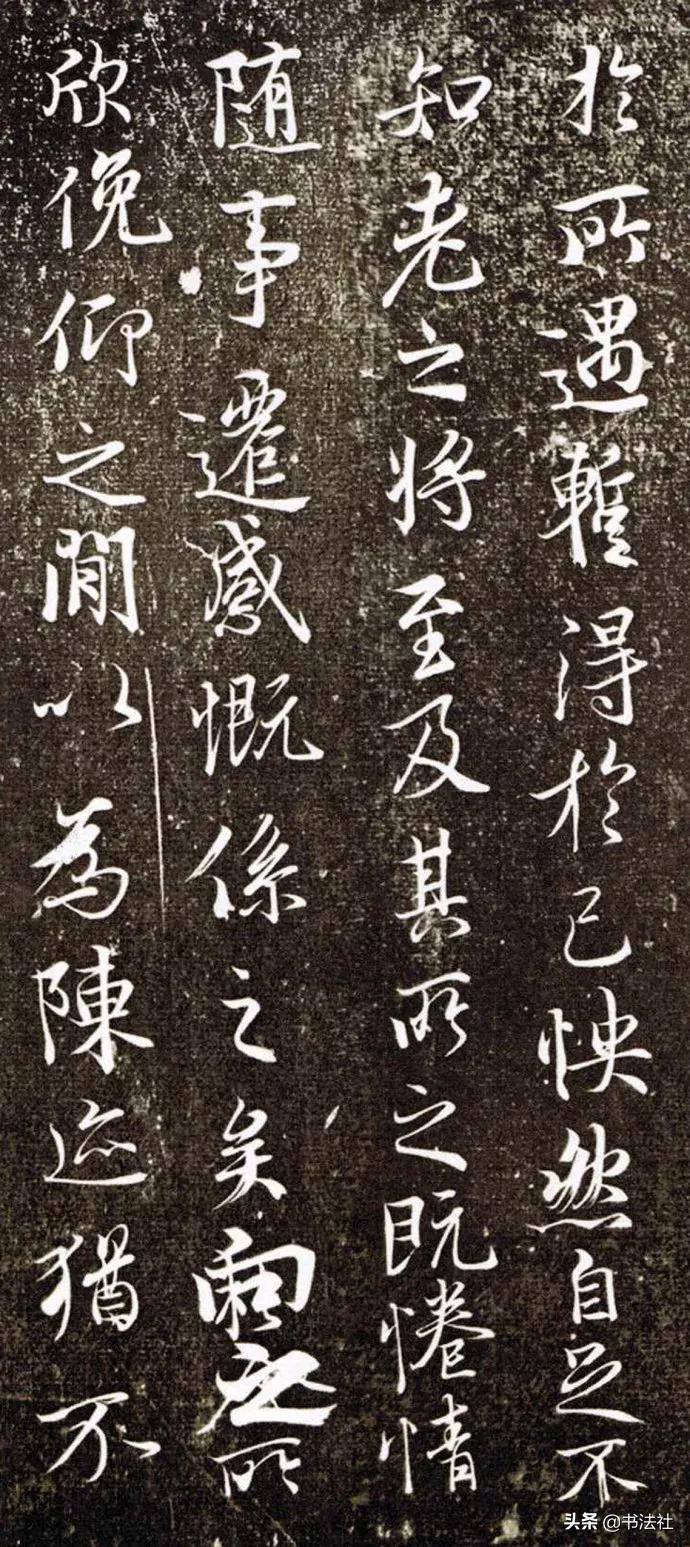 於所遇蹔得於己怏然自足不
知老之将至及其所之既惓情
随事遷感慨係之矣向之所
欣俛仰之閒以為陳迹猶不
头条 @书法社